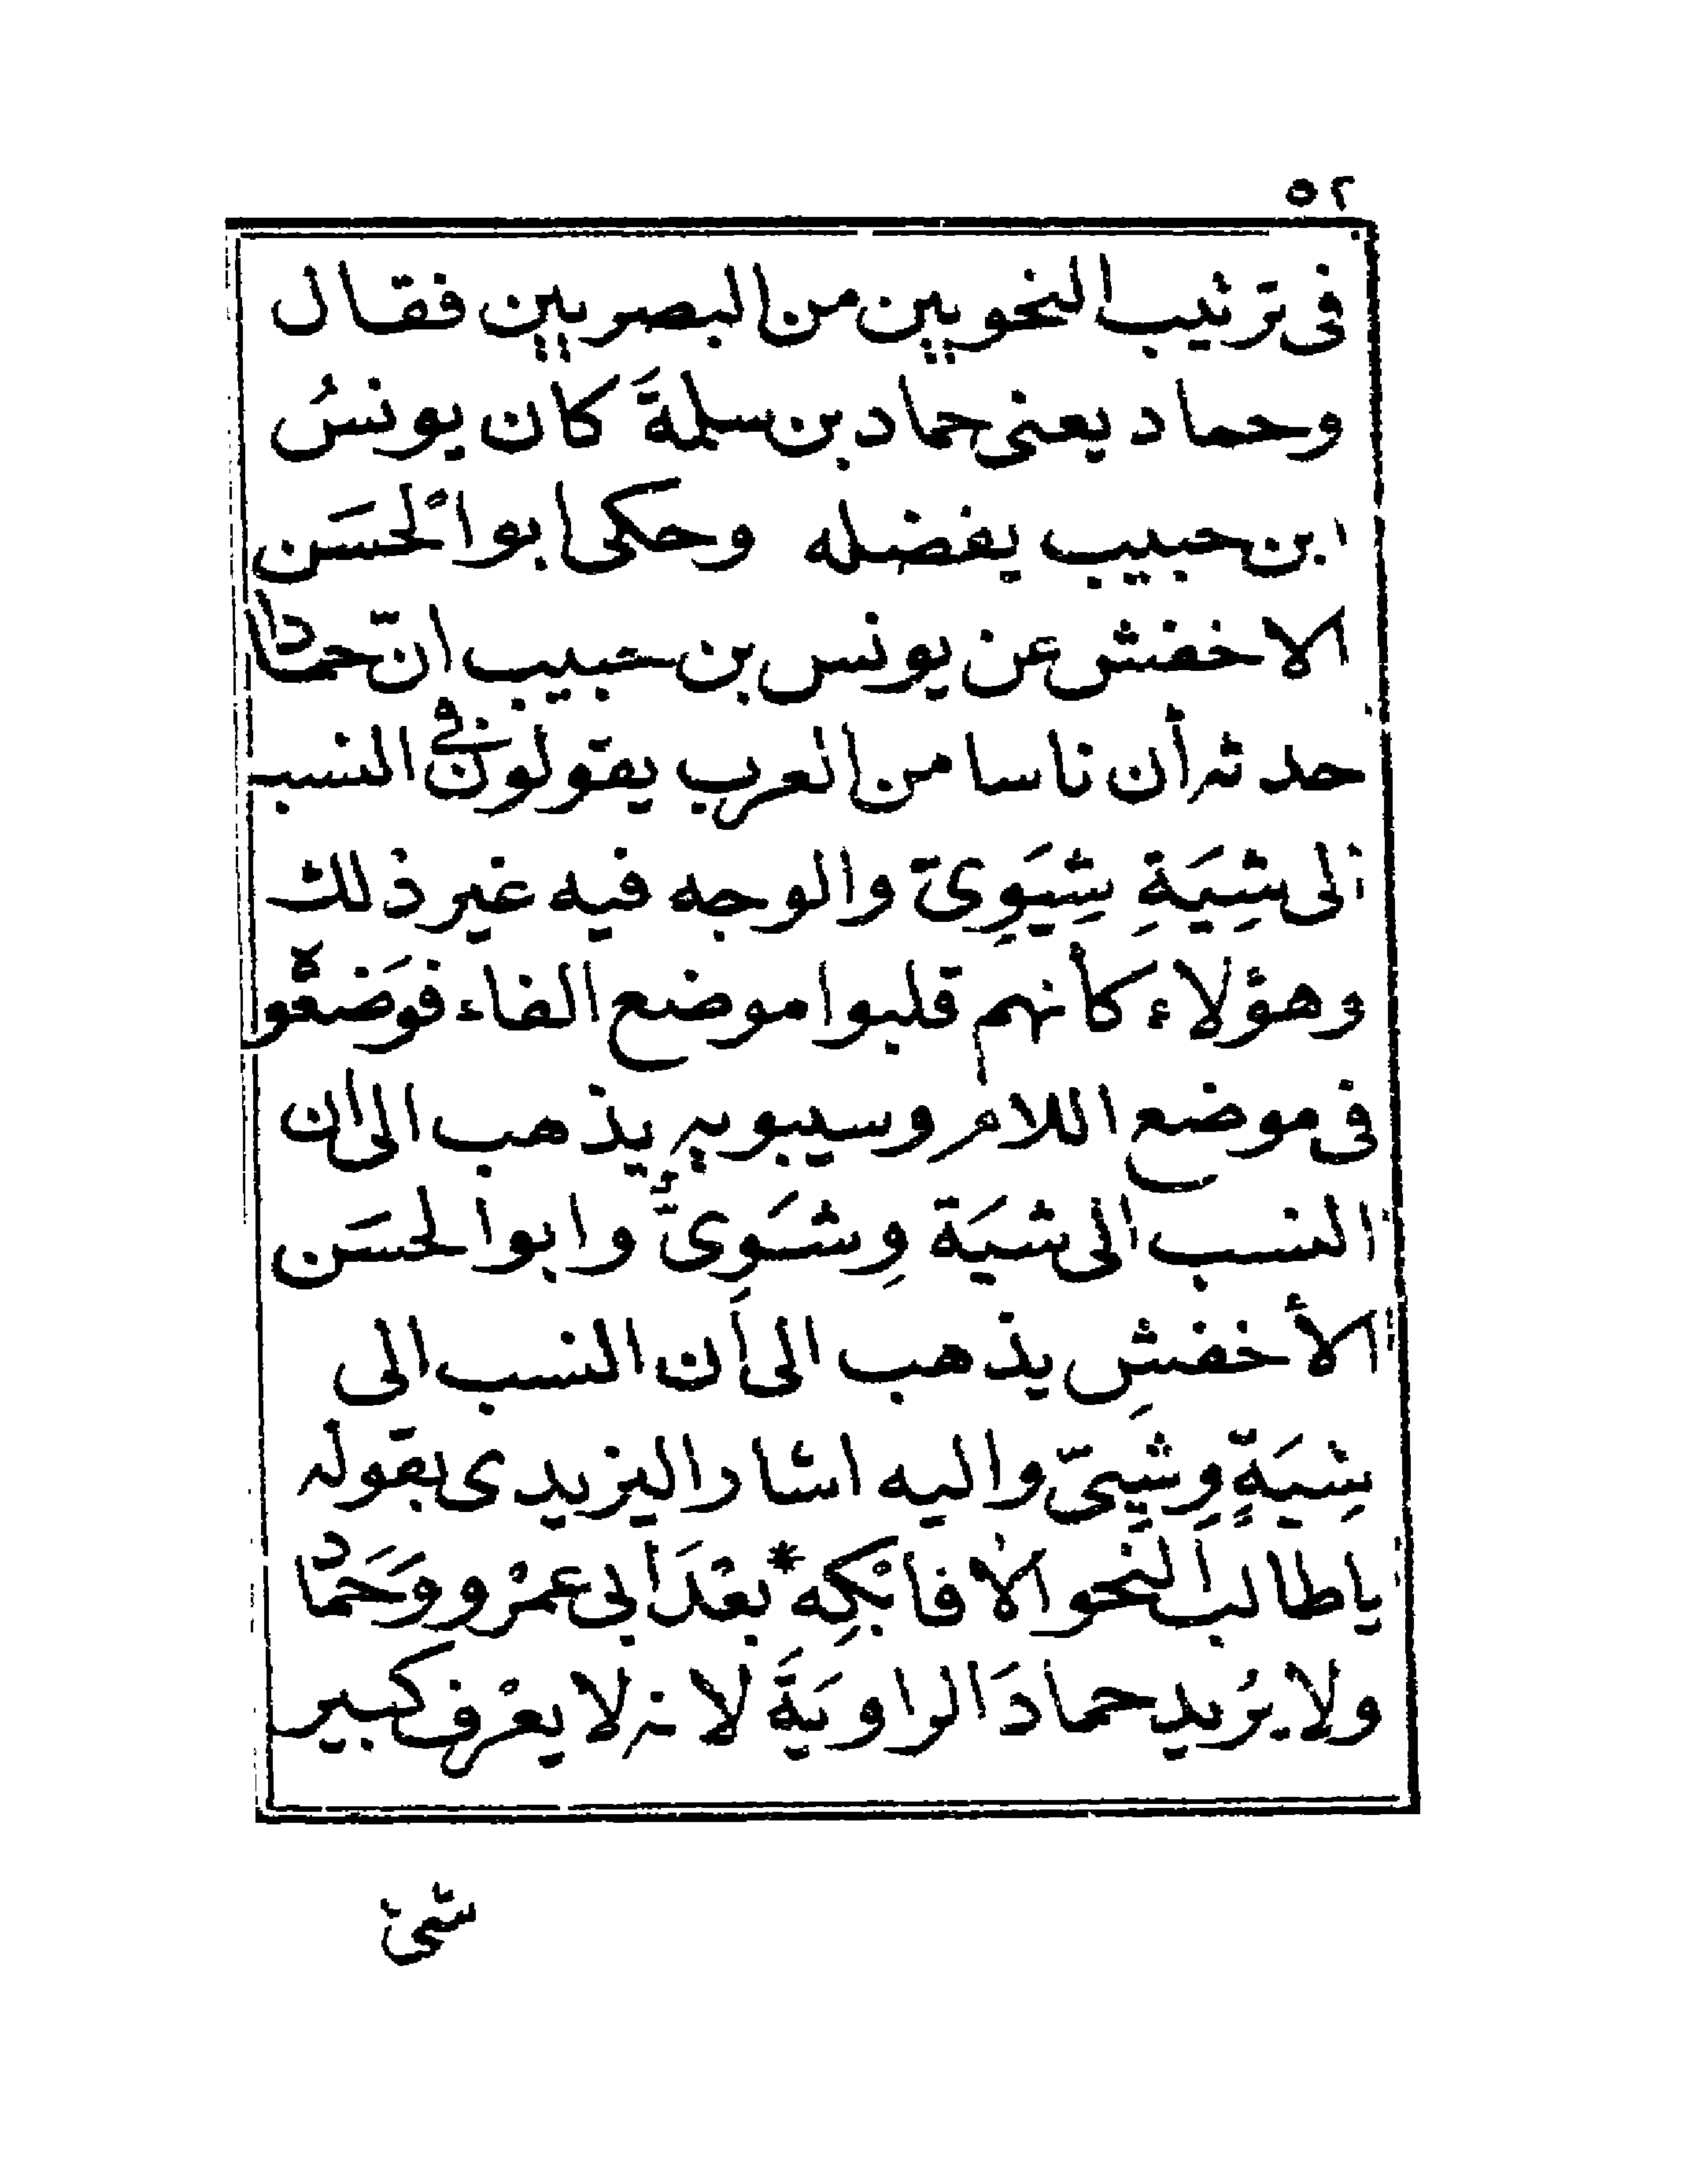 ٥٢
فى ترتيب النحويين من البصريين فقال
وحماد يعنى حماد بن سلمةَ كان يونسُ
ابن حبيب يفضله وحكى ابوا ْلحسَن
الاخفش عن يونس بن حبيب انّ حمادا
حدثه أن ناسا من العرب يقولون فى النسب
الى شِيَةِ شِيَوِىّ والوجه فيه غير ذلك
وهؤلاء كأنهم قلبوا موضع الفاء فوَضعوه
فى موضع اللام وسيبويه يذهب الى ان
النسب الى شيَة وِشَوِىٌّ وابوا لحسَن
الأخفشِ يذهب الى أن النسب الى
شِيَةٍ وِشْيِىّ واليه اشار اليزيدى بقوله
ياطالبَ النَحو الا فابْكِه * بعْدَ ابى عمْرو وَحَماد
ولا يرُيد حمادَ الراويَةَ لانه لا يعْرف كبير
شئ